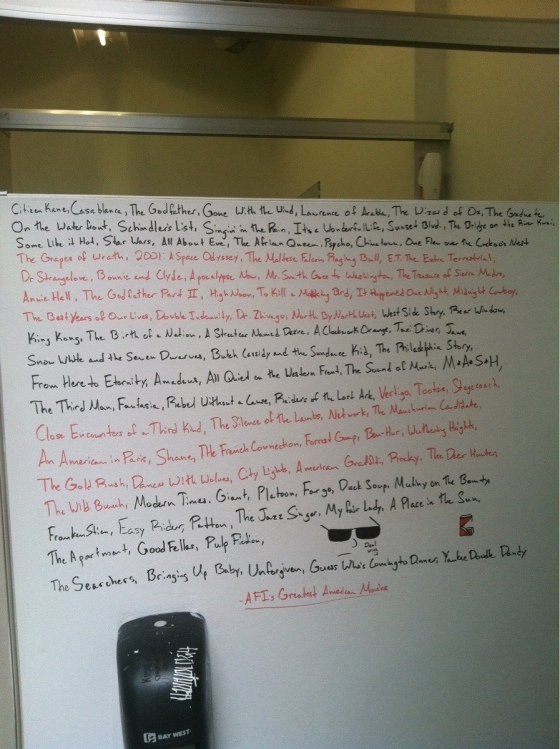 Citizen Kane, Casablanca, The Godfather, Gone With the Wind, Lawrence of Arabia, The Wizard of Oz, The Graduate,
On the Waterfront, Schindler's List, Singin' in the Rain, It's a Wonderful Life, Sunset Blvd., The Bridge on the River Kwai,
Some Like it Hot, Star Wars, All About Eve, The African Queen, Psycho, Chinatown, One Flew over the Cuckoo's Nest
The Grapes of Wrath, 2001: A Space Odyssey, The Maltese Falcon, Raging Bull, E.T. The Extra Terrestrial,
Dr Strangelove, Bonnie and Clyde, Apocalypse Now, Mr. Smith Goes to Washington, The Treasure of Sierra Madre,
Annie Hall, The Godfather Part II, High Noon, To Kill a Mockingbird, It Happened One Night, Midnight Cowboy,
The Best Years of Our Lives, Double Indemnity, Dr. Zhivago, North By North West, West Side Story, Rear Window,
King Kong, The Birth of a Nation, A Streetcar Named Desire, A Clockwork Orange, Taxi Driver, Jaws,
Snow White and the Seven Dwarves, Butch Cassidy and the Sundance Kid, The Philadelphia Story,
From Here to Eternity, Amadeus, All Quiet on the Western Front, The Sound of Music, M*A*S*H,
The Third Man, Fantasia, Rebel Without a Cause, Raiders of the Lost Ark, Vertigo, Tootsie, Stagecoach,
Close Encounters of a Third Kind, The Silence of the Lambs, Network, The Manchurian Candidate,
An American in Paris, Shane, The French Connection, Forrest Gump, Ben-Hur, Wuthering Heights,
The Gold Rush, Dances With Wolves, City Lights, American Graffiti, Rocky, The Deer Hunter,
The Wild Bunch, Modern Times, Giant, Platoon, Fargo, Duck Soup, Mutiny on the Bounty
Frankenstien, Easy Rider, Patton, The Jazz Singer, My Fair Lady, A Place in the Sun,
The Apartment, GoodFellas, Pulp Fiction,
The Searchers, Bringing Up Baby, Unforgiven, Guess Who's Coming to Dinner, Yankee Doodle Dandy
- AFI's Greatest American Movies
BAY WEST